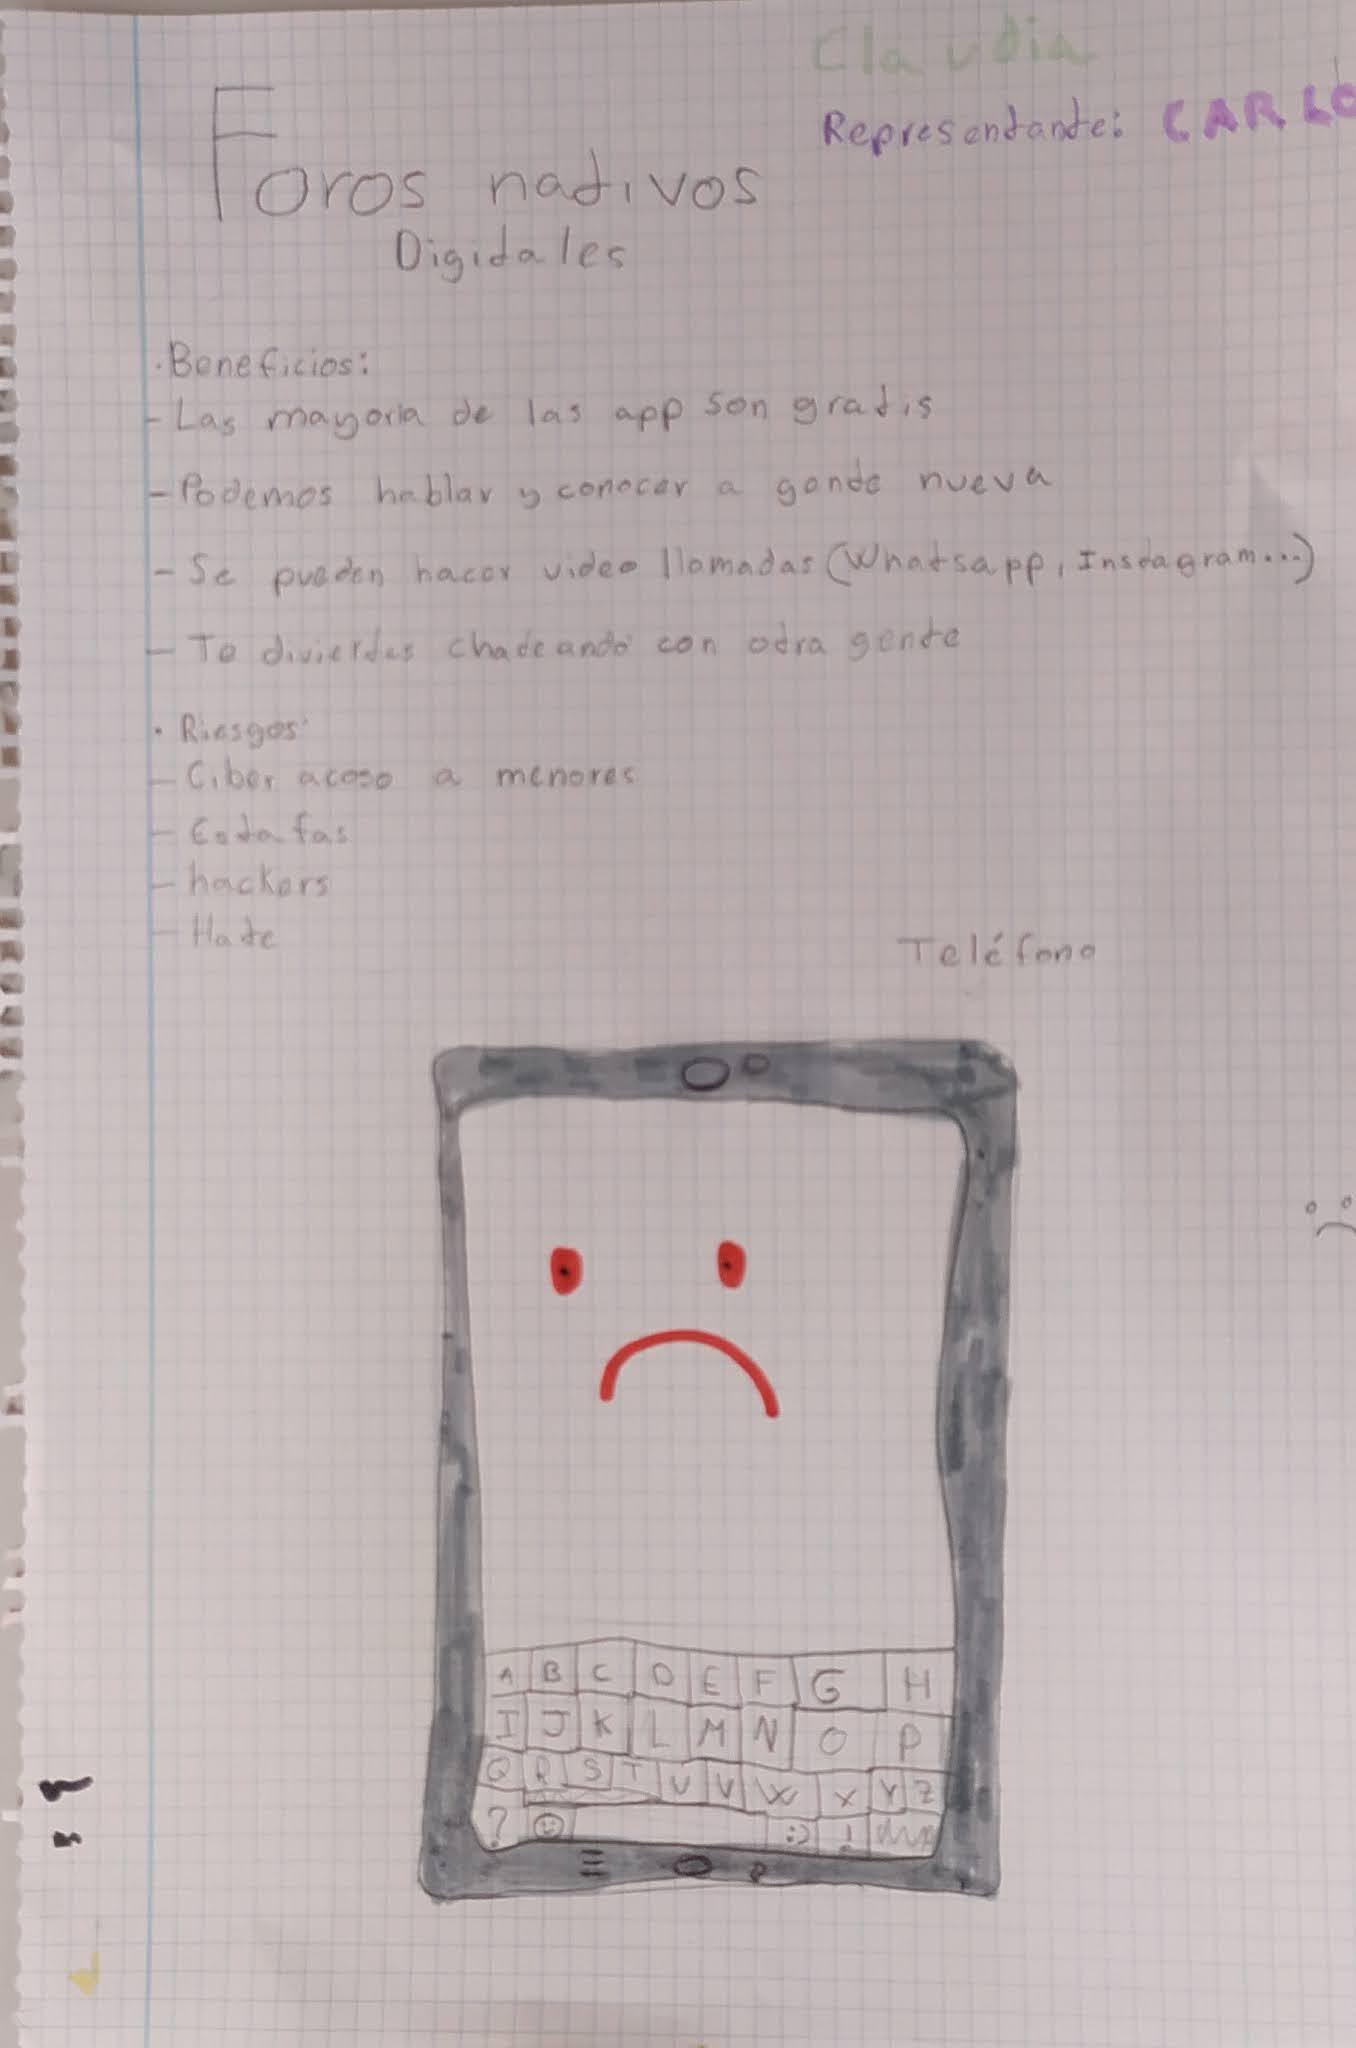 Claudia
Representante: CARLO
Foros nativos
Digitales
· Beneficios:
- Las mayoria de las app son gratis
- Podemos hablar y conocer a gente nueva
- Se pueden hacer video llamadas (Whatsapp, Instagram...)
- Te diviertes chateando con otra gente
· Riesgos
- Ciber acoso a menores
- Estafas
- hackers
- Hate
Teléfono
A B C D E F G H
I J K L M N O P
Q R S T U V W X Y Z
? :) !